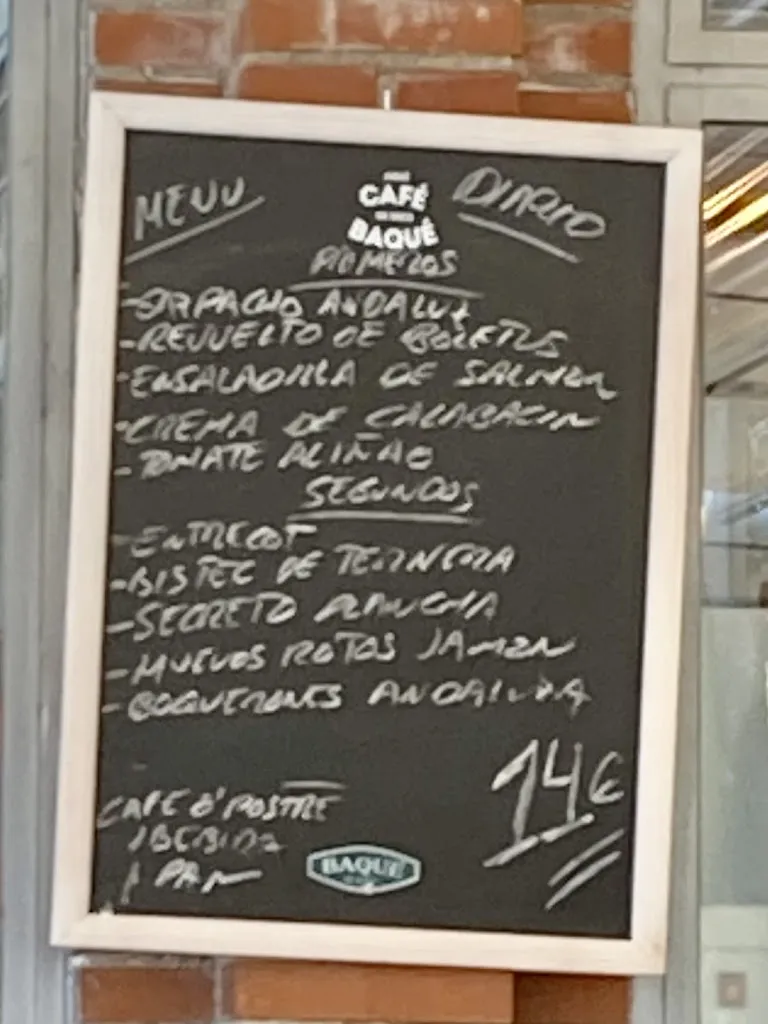 MENU DIARIO
CAFÉ
BAQUÉ
PRIMEROS
-GAZPACHO ANDALUZ
-REVUELTO DE BOLETUS
-ENSALADILLA DE SALMON
-CREMA DE CALABACIN
-TOMATE ALIÑAO
SEGUNDOS
-ENTRECOT
-BISTEC DE TERNERA
-SECRETO PLANCHA
-HUEVOS ROTOS JAMON
-BOQUERONES ANDALUZA
14€
CAFE O' POSTRE
1 BEBIDA
1 PAN
BAQUÉ